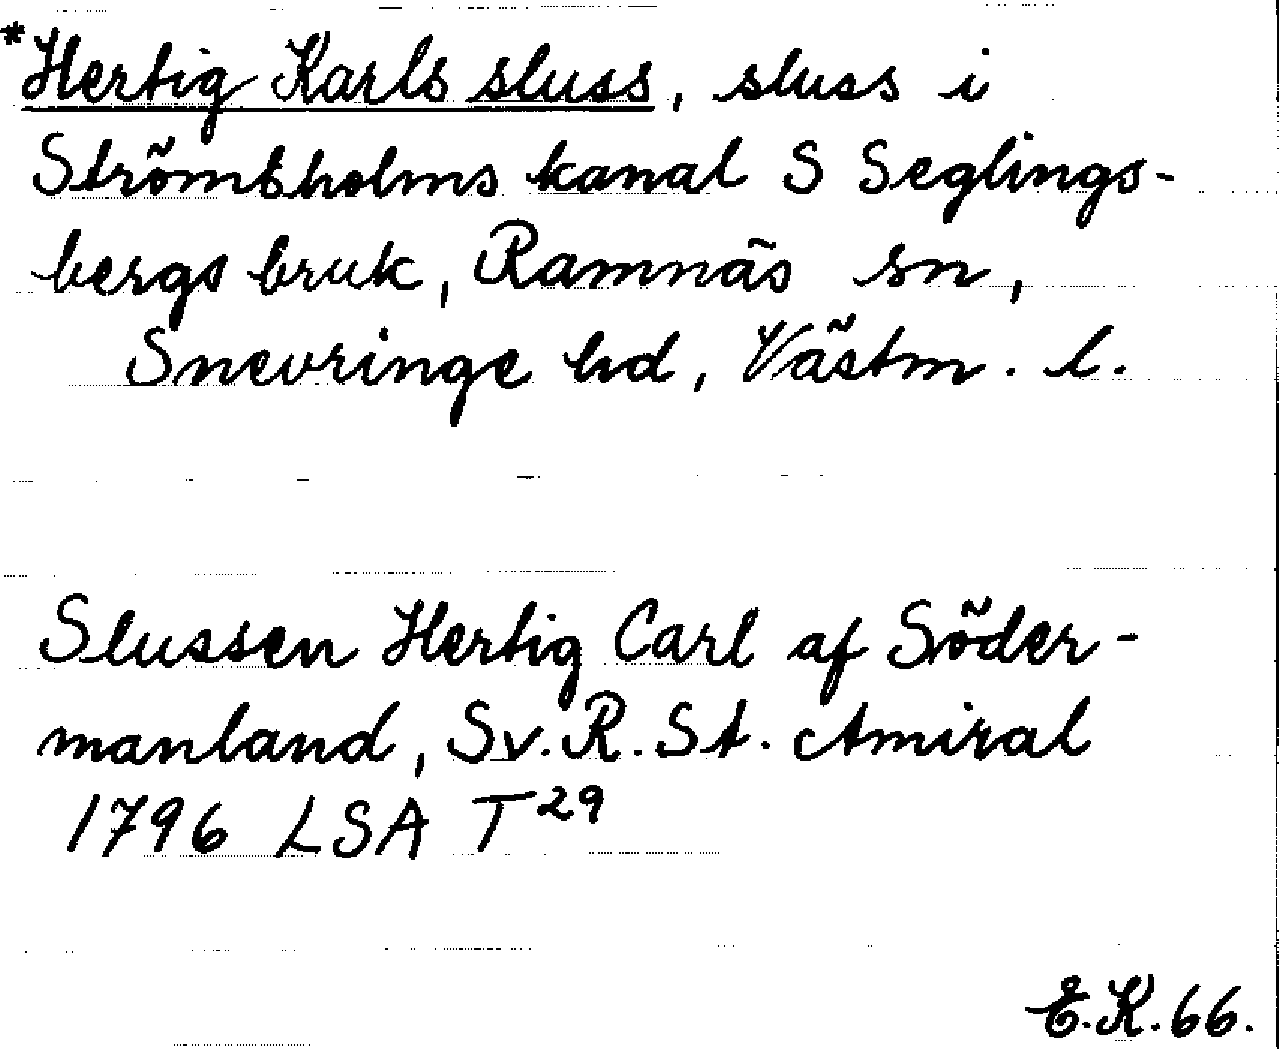 *Hertig Karls sluss, sluss i
Strömsholms kanal S Seglings-
bergs bruk, Ramnäs sn,
Snevringe hd, Västm. l.
Slussen Hertig Carl af Söder-
manland, Sv. R. St. Amiral
1796 LSA T29
E.K. 66.